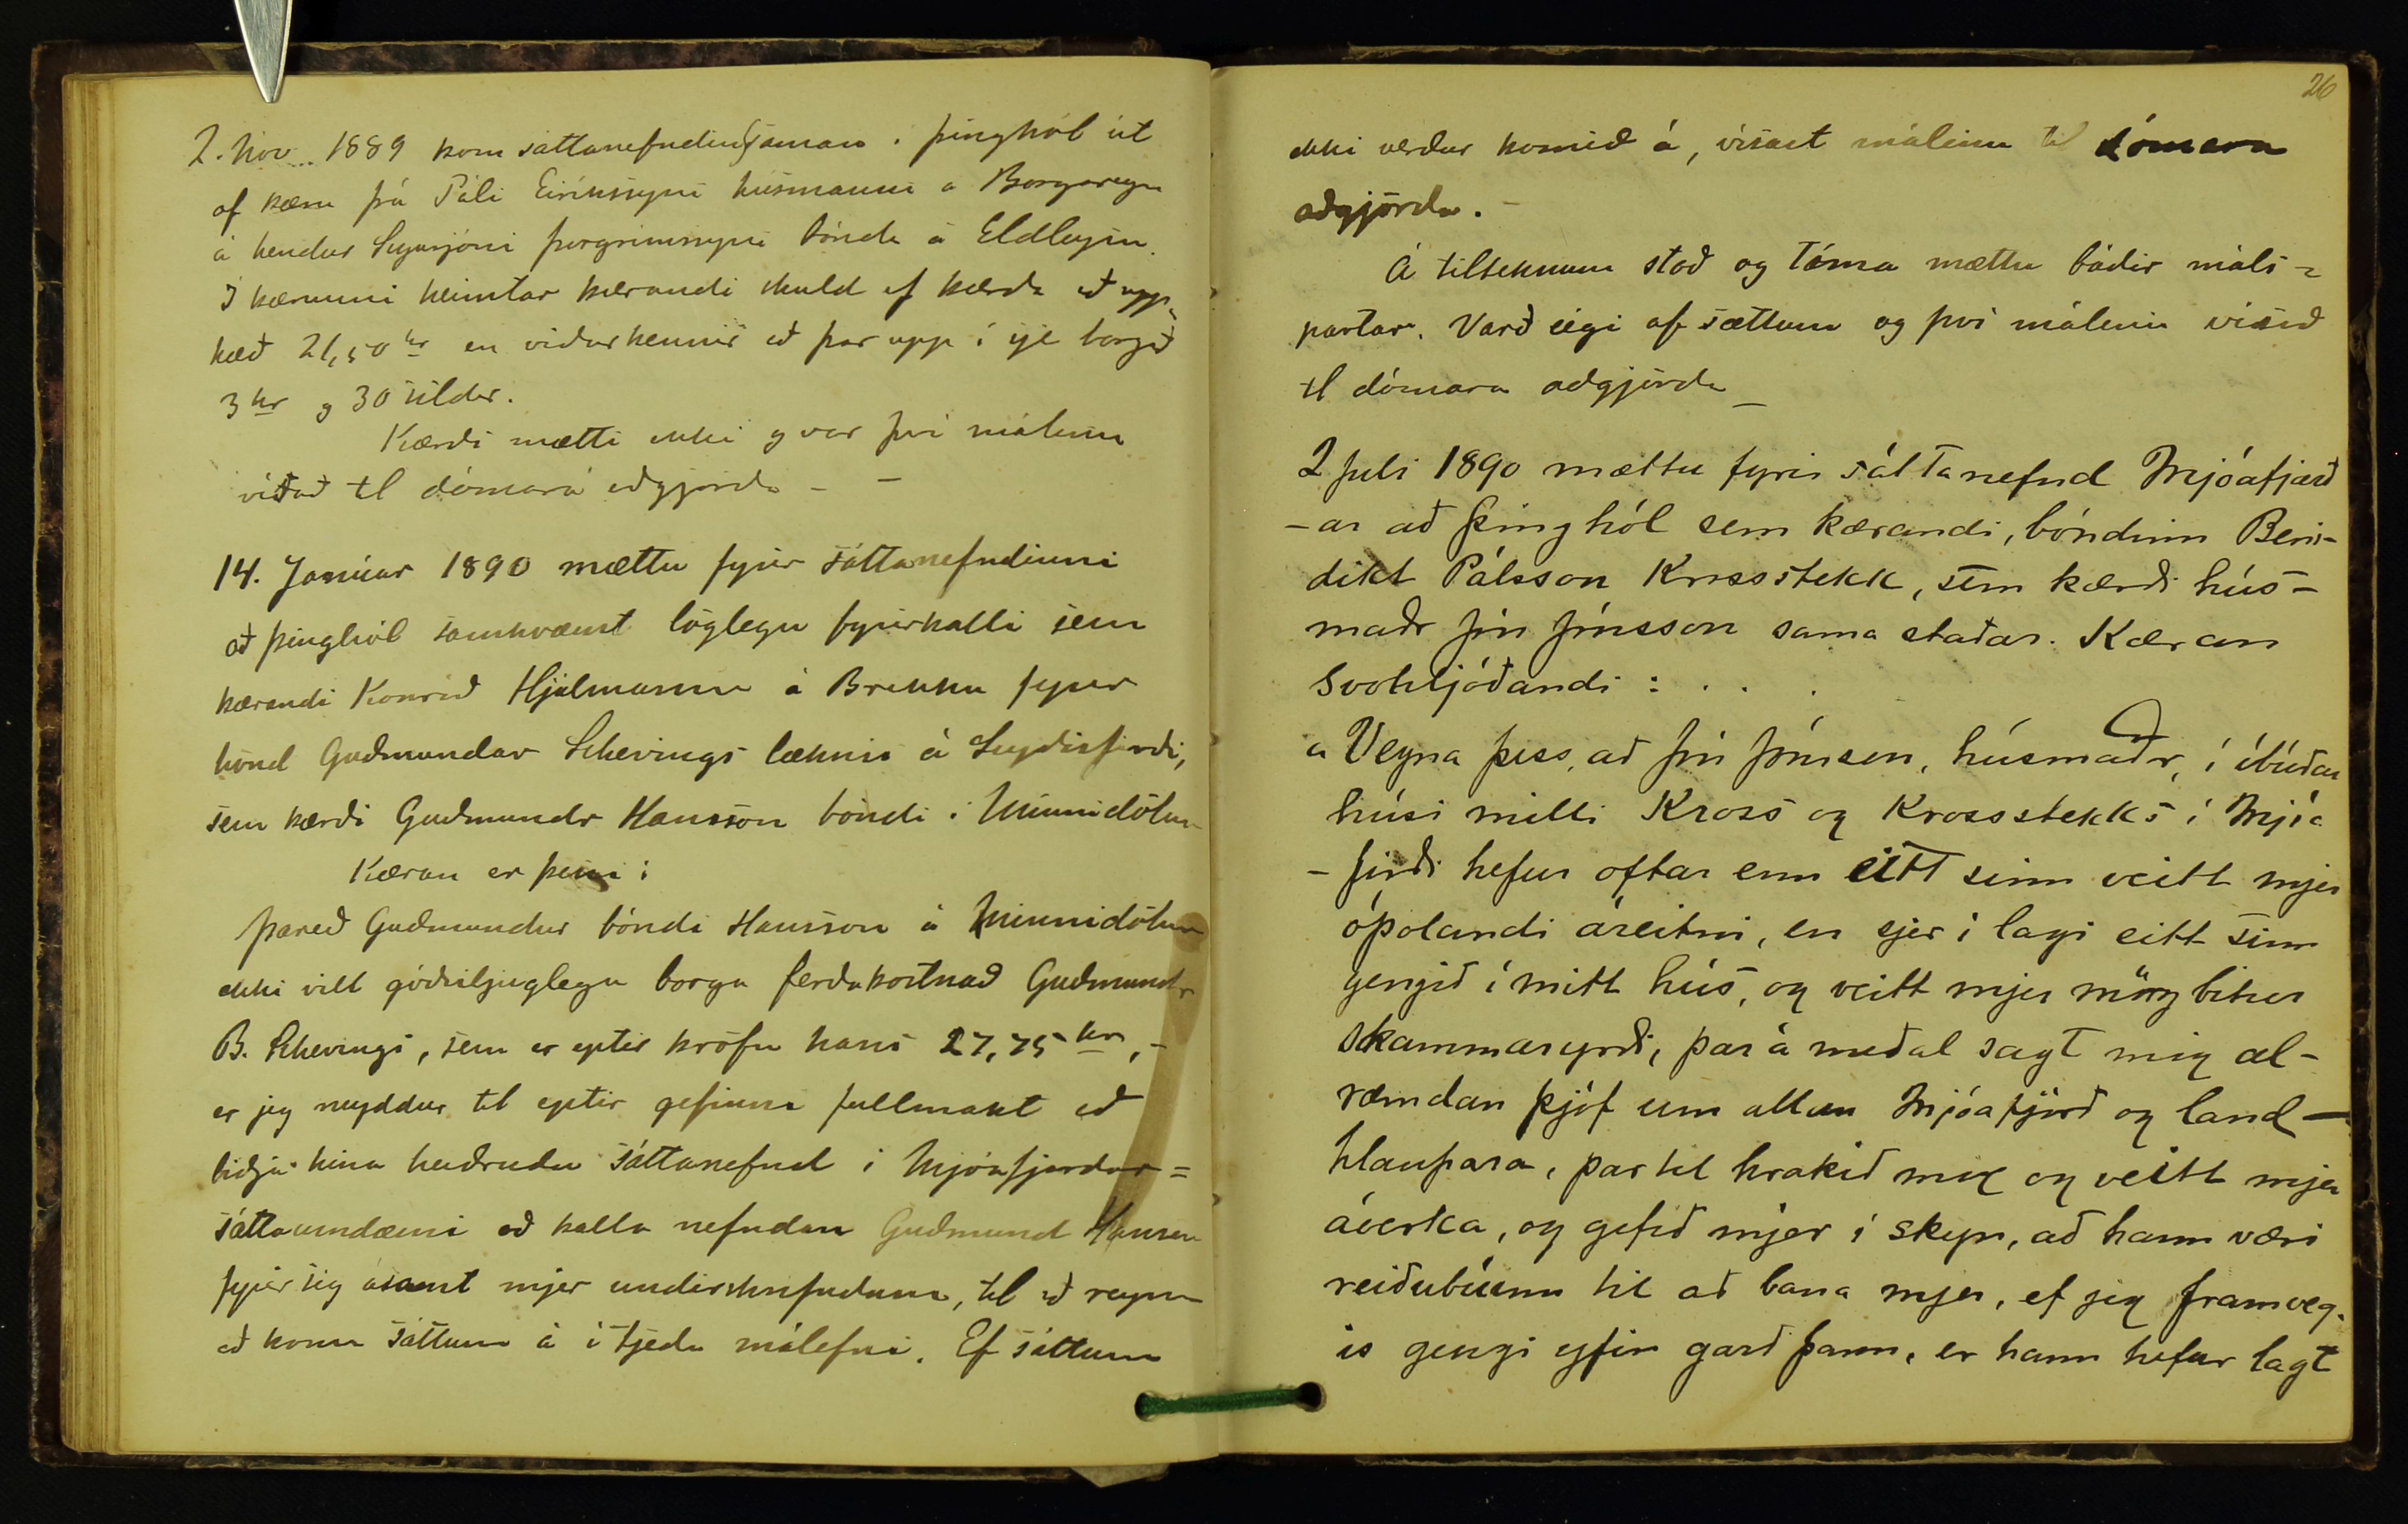 2. Nov. 1889 kom sáttanefndin saman í Þinghól út
af kæru frá Páli Eiríkssyni húsmanni á Borgareyri
á hendur Sigurjóni Þorgrímssyni bónda á Eldleysu.
Í kærunni heimtar kærandi skuld af kærða að upp-
hæð 21,50 kr en viðurkennir að þar upp í sje borgað
3 kr og 30 síldar.
Kærði mætti ekki og var því málinu
vísað til dómara aðgjörða - -
14. Janúar 1890 mættu fyrir sáttanefndinni
að Þinghól samkvæmt löglegu fyrirkalli sem
kærandi Konráð Hjálmarsson á Brekku fyrir
hönd Guðmundar Schevings læknis á Seyðisfirði,
sem kærði Guðmundr Hansson bóndi í Minnidölum
Kæran er þessi:
Þareð Guðmundur bóndi Hansson á Minnidölum
ekki vill góðviljuglega borga ferðakostnað Guðmundr
B. Schevings, sem er eptir kröfu hans 27,75 kr, -
er jeg neyddur til eptir gefinni fullmakt að
biðja hina heiðruðu sáttanefnd í Mjóafjarðar=
sáttaumdæmi að kalla nefndan Guðmund Hansson
fyrir sig ásamt mjer undirskrifuðum, til að reyna
að koma sáttum á í tjeðu málefni. Ef sáttum
26
ekki verður komið á, vísast málinu til dómara
aðgjörða. -
Á tilteknum stað og tíma mættu báðir máls=
partar. Varð eigi af sættum og því málinu vísað
til dómara aðgjörða -
2 Juli 1890 mættu fyrir sáttanefnd Mjóafjarð
-ar að Þinghól sem kærandi, bóndinn Beni-
dikt Pálsson Krossstekk, sem kærði hús-
maðr Jón Jónsson sama staðar. Kæran
Svohljóðandi: . . .
„ Vegna þess, að Jón Jónsson, húsmaðr, í íbúðar
húsi milli Kross og Krossstekks í Mjóa
- firði hefur oftar enn eitt sinn veitt mjer
óþolandi áreitni, en sjer í lagi eitt sinn
gengið í mitt hús, og veitt mjer mörg bitur
skammaryrði, þar á meðal sagt mig al-
ræmdan þjóf um allan Mjóafjörð og land-
hlaupara, þar til hrakið mig og veitt mjer
áverka, og gefið mjer í skyn, að hann væri
reiðubúinn til að bana mjer, ef jeg framveg-
is gengi yfir garð þann, er hann hefur lagt